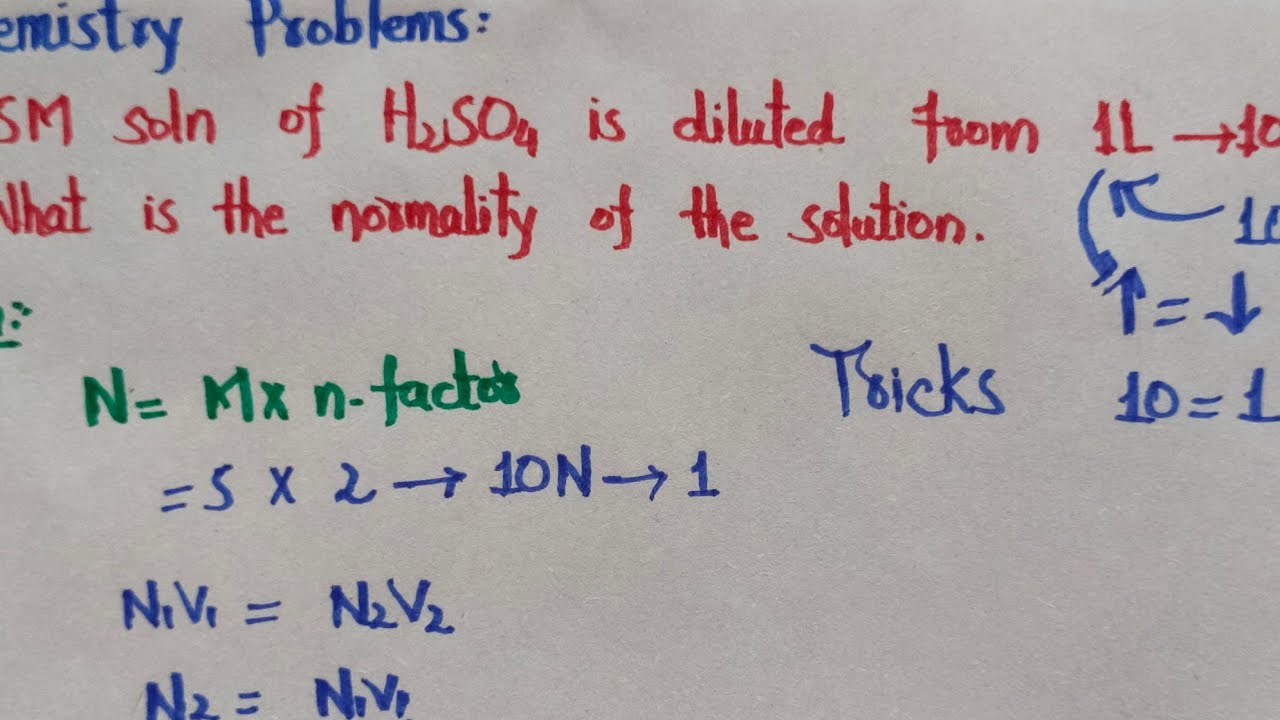 emistry Problems:
5M soln of H₂SO₄ is diluted from 1L → 10
What is the normality of the solution.
10
↑ = ↓
:
N = M x n-factor
Tricks
10 = 1
= 5 x 2 → 10N → 1
N₁V₁ = N₂V₂
N₂ = N₁V₁